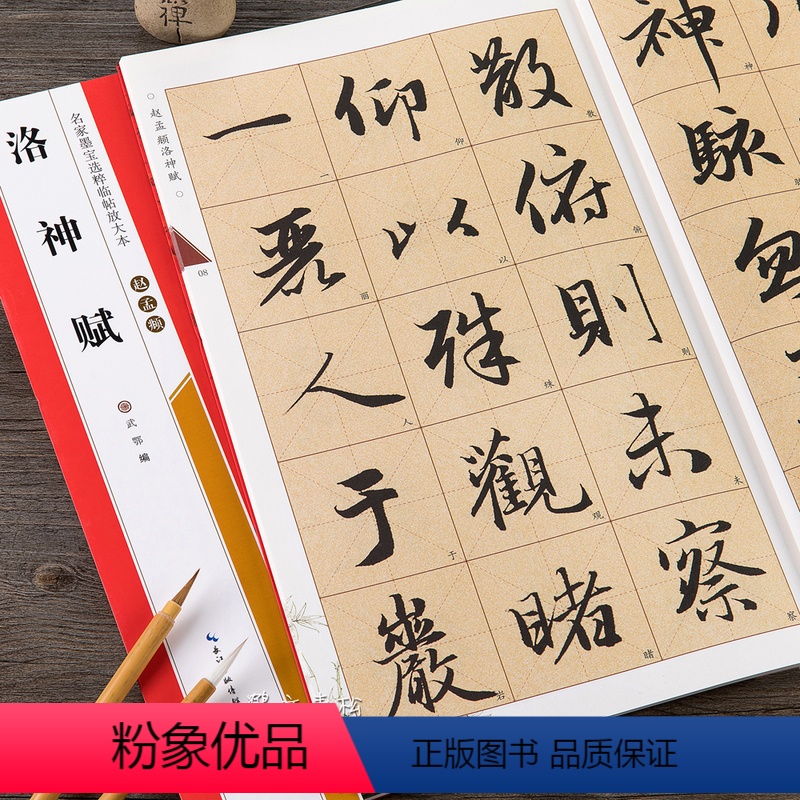 禅
洛神赋
名家墨宝选粹临帖放大本
赵孟頫
武鄂 编
长江
赵孟頫洛神赋
08
神
駭
忽
散俯則未察
仰以殊觀睹
一麗人于巖
神
散 俯 則 未 察
仰 以 殊 观 睹
一 丽 人 于 岩
粉象优品
正版图书 品质保证